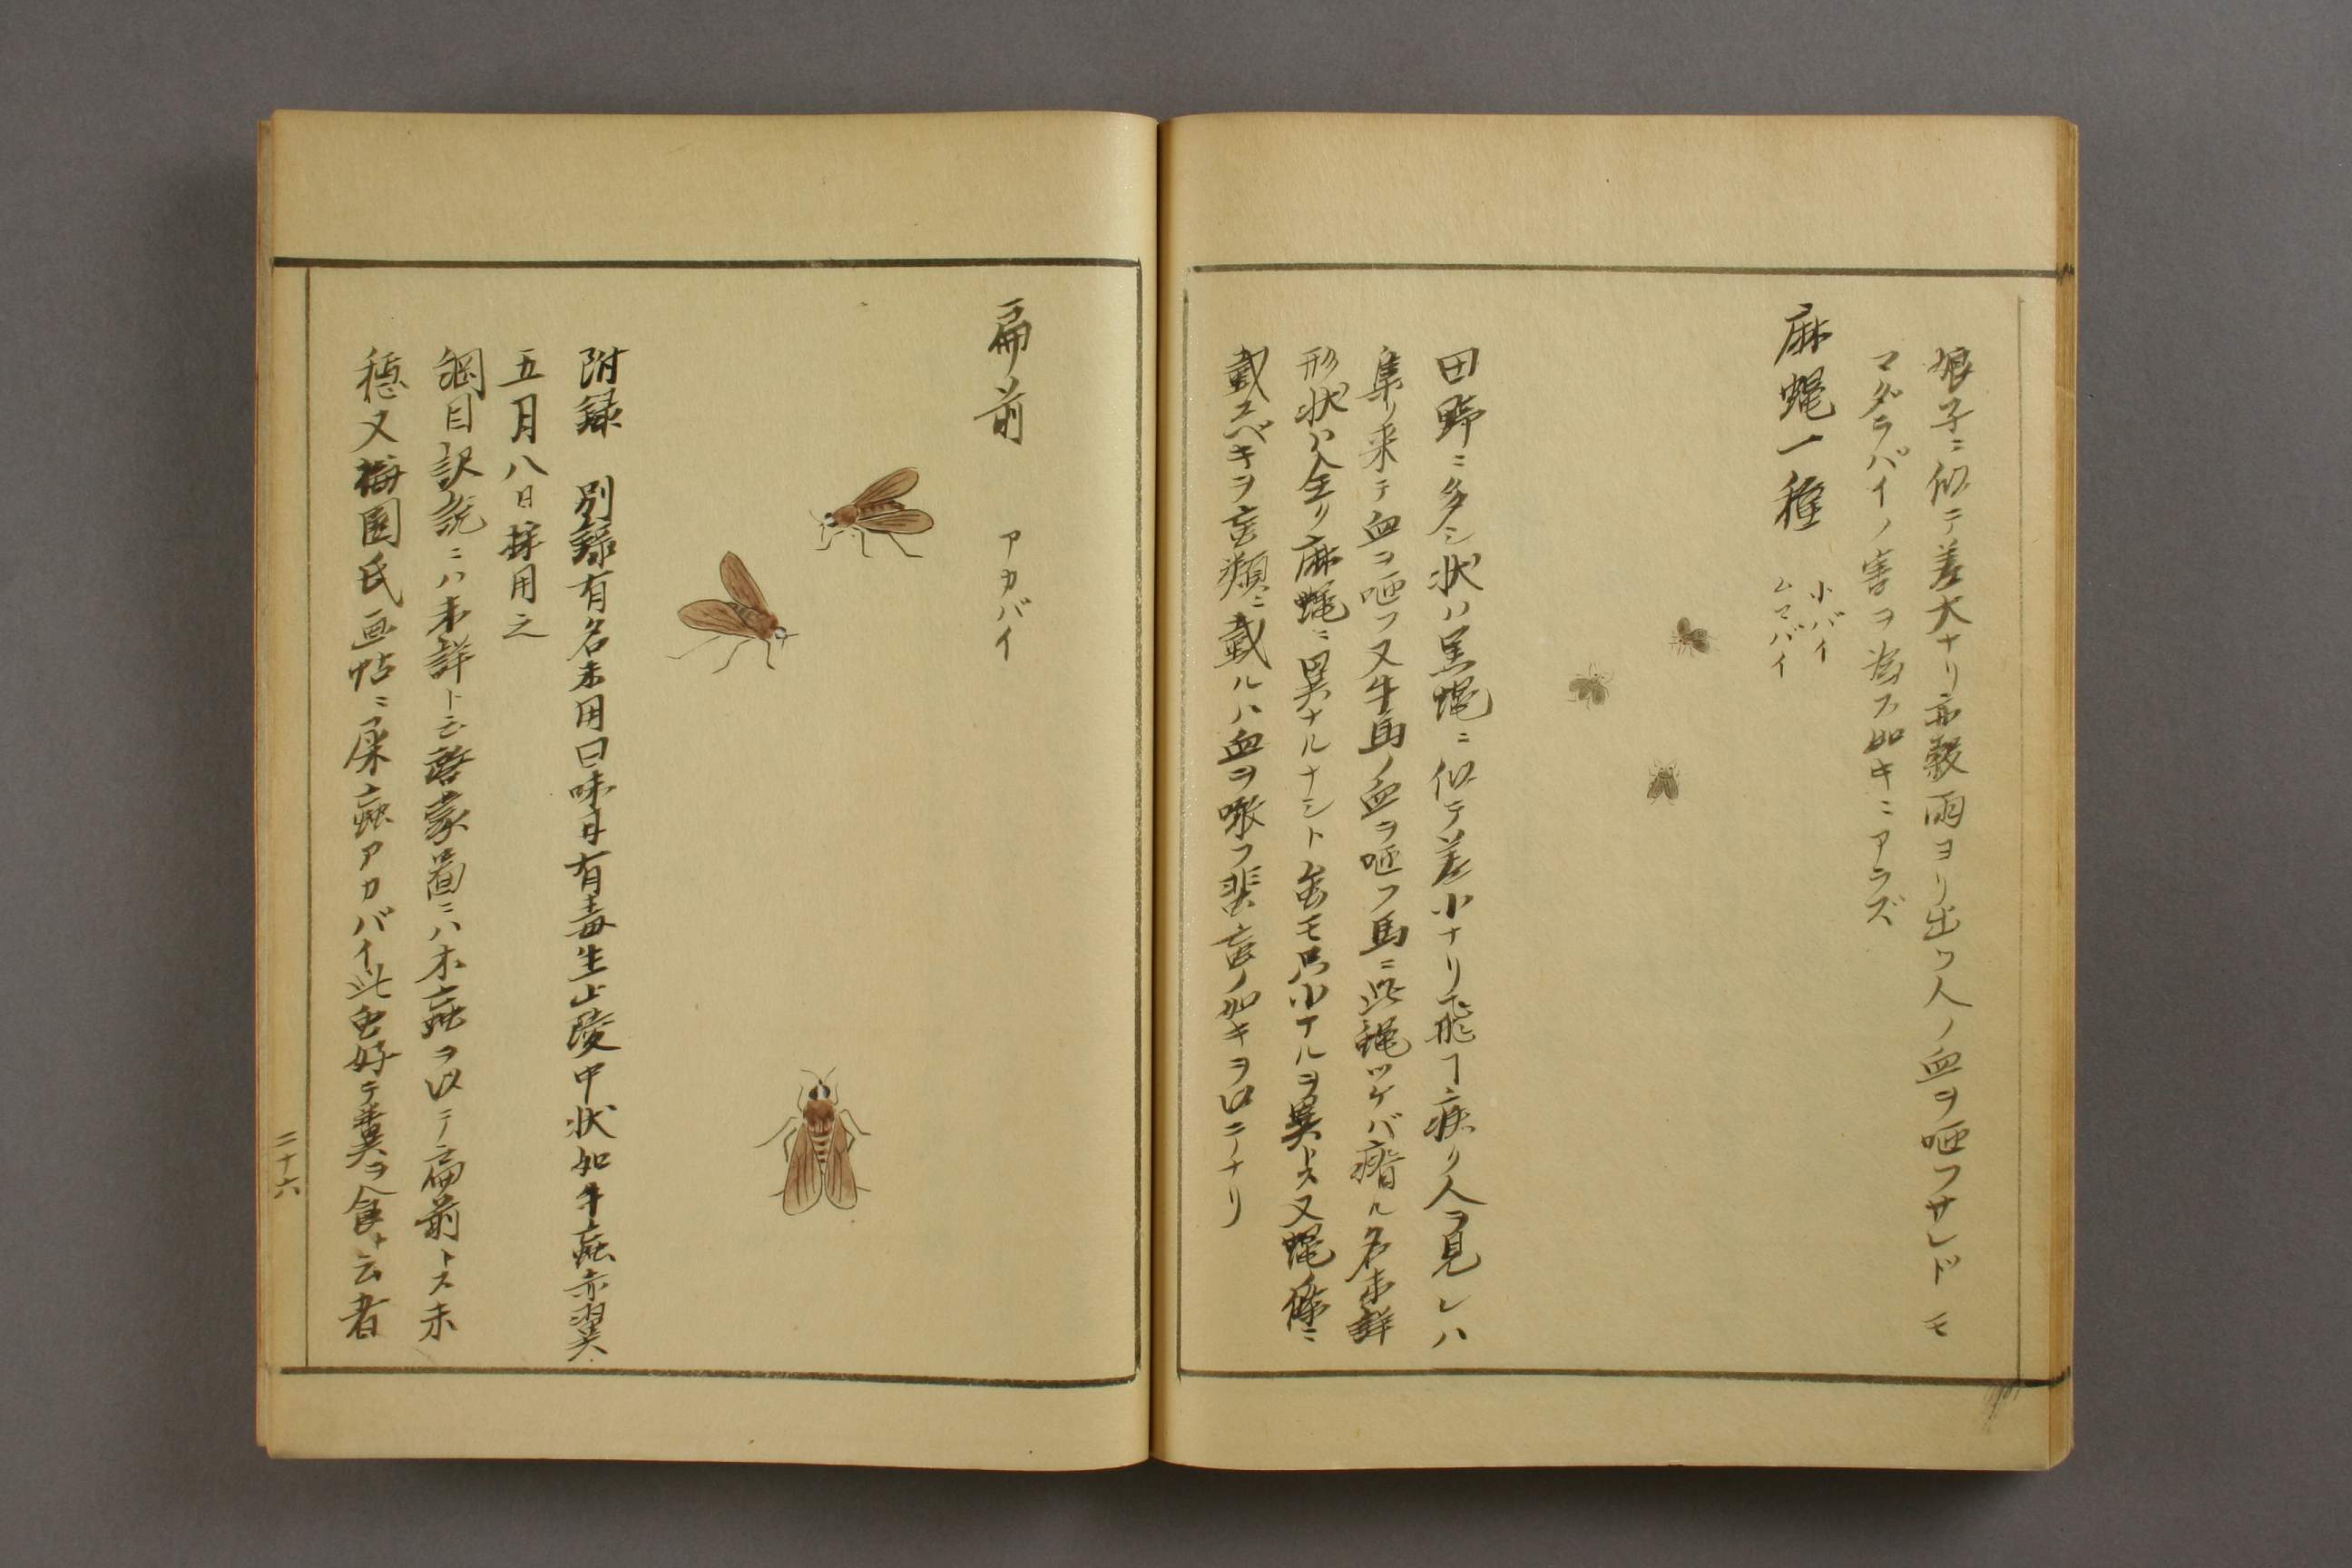 娘子ニ似テ差大ナリ亦穀雨ヨリ出ツ人ノ血ヲ咂フサレドモ
マダラバイノ害ヲ為ス如キニアラズ
麻蠅一種 小バイ
ムマバイ
田野ニ多シ状ハ黒蠅ニ似テ差小ナリ飛フ疾ク人ヲ見レハ
集リ来テ血ヲ咂フ又牛馬ノ血ヲ咂フ馬ニ此蠅ツケバ瘠ル名未詳
形状ハ全ク麻蠅ニ異ナルナシト雖モ只小ナルヲ異トス又蠅條ニ
載スベキヲ䖟類ニ載ルハ血ヲ噉フ蜚䖟ノ如キヲ以テナリ
扁前 アカバイ
附録 別録有名未用曰味甘有毒生山陵中状如牛䖟赤翼
五月八日採用之
綱目訳説ニハ未詳トシ啓蒙圖ニハ木䖟ヲ以テ扁前トス未
穏又梅園氏画帖ニ屎䖟アカバイ此虫好テ糞ヲ食ト云者
二十六